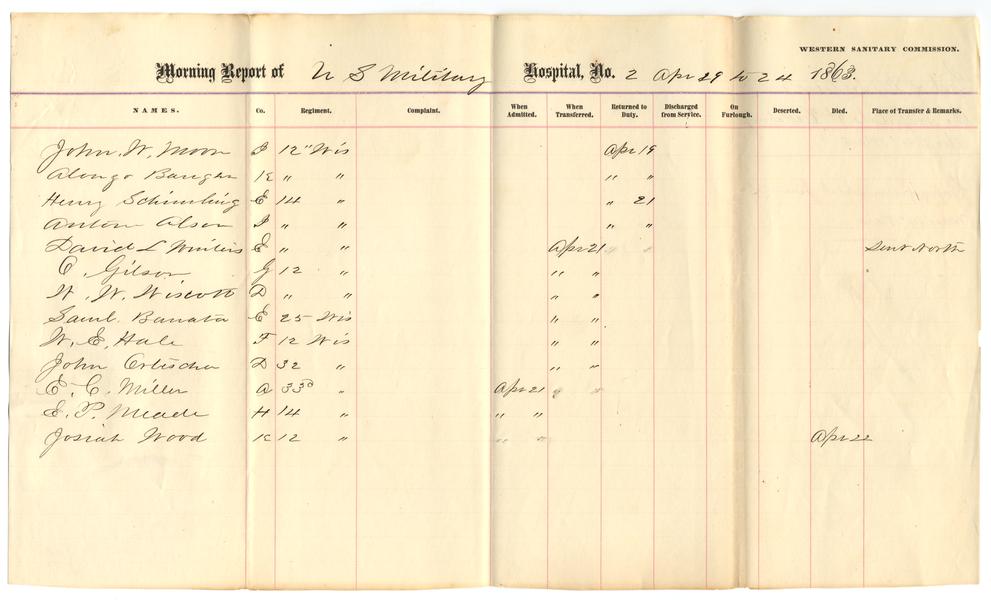 WESTERN SANITARY COMMISSION.
Morning Report of U S Military Hospital, No. 2 Apr 29 to 24 1863.
NAMES. Co. Regiment. Complaint. When Admitted. When Transferred. Returned to Duty. Discharged from Service. On Furlough. Deserted. Died. Place of Transfer & Remarks.
John. W. Moon I 12" Wis Apr 19
Alonzo K " " " "
Henry E 14 " " 21
Anton Olson I " " " "
David L Winters E " " Apr 21 Sent North
C. Gilson G 12 " " "
W. W. Wiscott D " " " "
Saml. E 25 Wis " "
W. E. Hale F 12 Wis " "
John D 32 " " "
E. C. Miller A 33d " Apr 21
E. P. Meade H 14 " " "
Josiah Wood K 12 " " " Apr 22